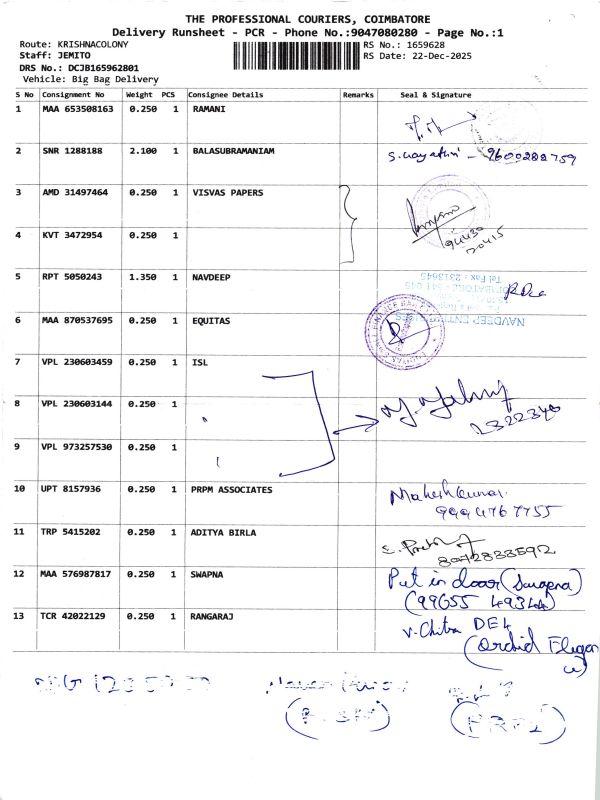 THE PROFESSIONAL COURIERS, COIMBATORE
Delivery Runsheet - PCR - Phone No.:9047080280 - Page No.:1
Route: KRISHNACOLONY RS No.: 1659628
Staff: JEMITO RS Date: 22-Dec-2025
DRS No.: DCJB165962801
Vehicle: Big Bag Delivery
S No Consignment No Weight PCS Consignee Details Remarks Seal & Signature
1 MAA 653508163 0.250 1 RAMANI
2 SNR 1288188 2.100 1 BALASUBRAMANIAM 9600288759
3 AMD 31497464 0.250 1 VISVAS PAPERS
4 KVT 3472954 0.250 1 94430
70415
5 RPT 5050243 1.350 1 NAVDEEP
Tel Fax : 2313645
6 MAA 870537695 0.250 1 EQUITAS
7 VPL 230603459 0.250 1 ISL
8 VPL 230603144 0.250 1 2322340
9 VPL 973257530 0.250 1
10 UPT 8157936 0.250 1 PRPM ASSOCIATES Maheshkumar
9994767755
11 TRP 5415202 0.250 1 ADITYA BIRLA
8072833592
12 MAA 576987817 0.250 1 SWAPNA Put in door (Swapna)
(99655 49344)
13 TCR 42022129 0.250 1 RANGARAJ V. Chitra DE4
(Orchid